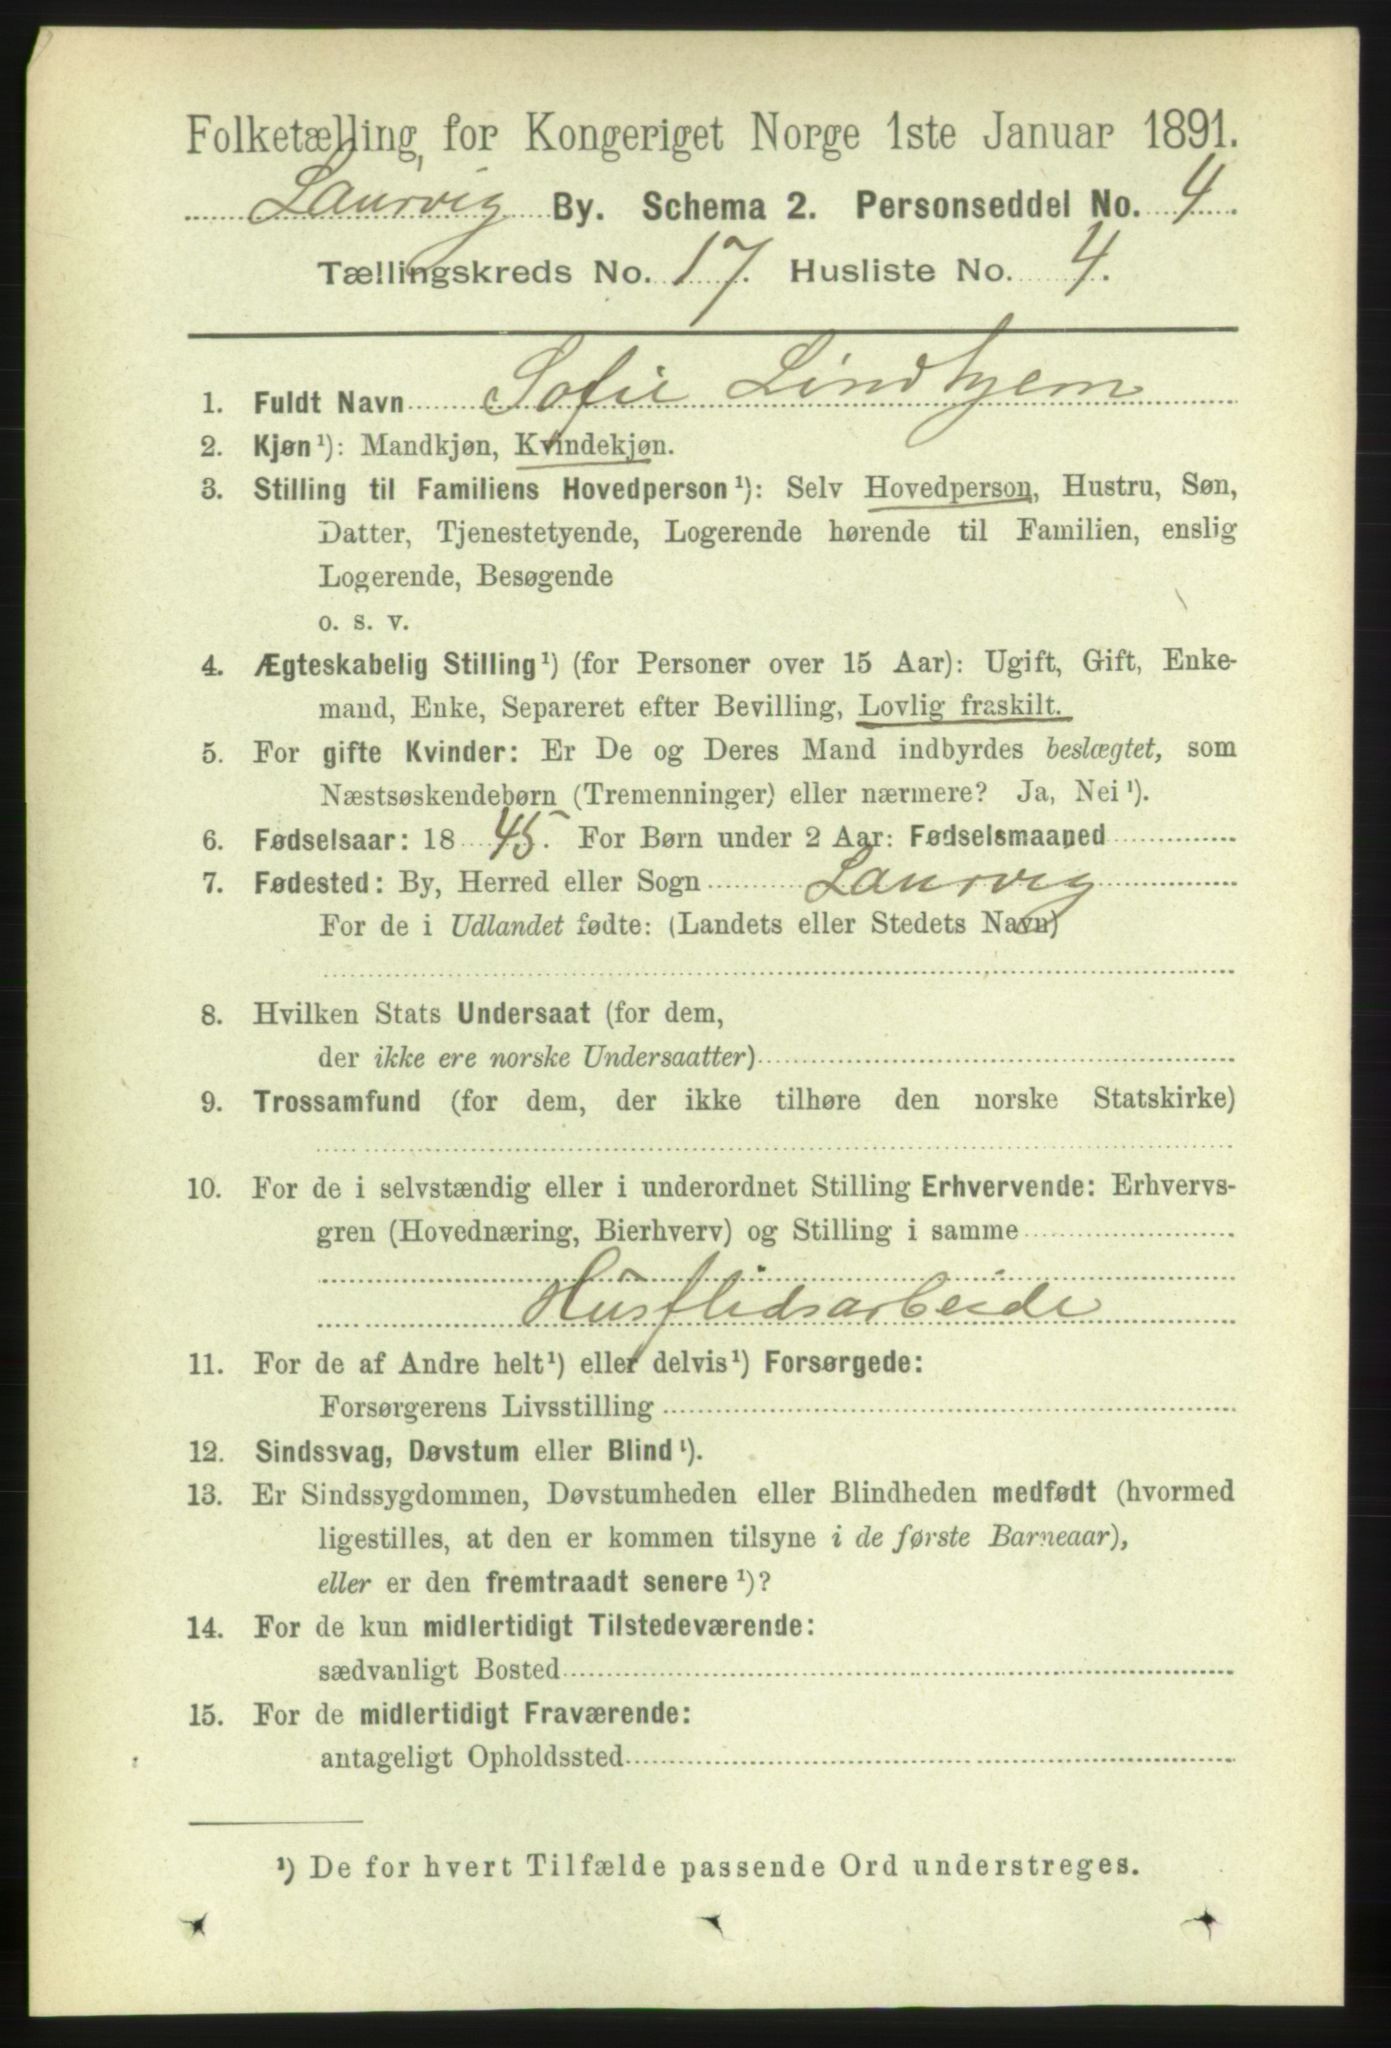 Folketælling for Kongeriget Norge 1ste Januar 1891.
Laurvig By. Schema 2. Personseddel No. 4
Tællingskreds No. 17. Husliste No. 4.
1. Fuldt Navn Sofie Lindhjem
2. Kjøn¹): Mandkjøn, Kvindekjøn.
3. Stilling til Familiens Hovedperson¹): Selv Hovedperson, Hustru, Søn,
Datter, Tjenestetyende, Logerende hørende til Familien, enslig
Logerende, Besøgende
o. s. v.
4. Ægteskabelig Stilling¹) (for Personer over 15 Aar): Ugift, Gift, Enke-
mand, Enke, Separeret efter Bevilling, Lovlig fraskilt.
5. For gifte Kvinder: Er De og Deres Mand indbyrdes beslægtet, som
Næstsøskendebørn (Tremenninger) eller nærmere? Ja, Nei¹).
6. Fødselsaar: 1845. For Børn under 2 Aar: Fødselsmaaned
7. Fødested: By, Herred eller Sogn Laurvig
For de i Udlandet fødte: (Landets eller Stedets Navn)
8. Hvilken Stats Undersaat (for dem,
der ikke ere norske Undersaatter)
9. Trossamfund (for dem, der ikke tilhøre den norske Statskirke)
10. For de i selvstændig eller i underordnet Stilling Erhvervende: Erhvervs-
gren (Hovednæring, Bierhverv) og Stilling i samme
Husflidsarbeide
11. For de af Andre helt¹) eller delvis¹) Forsørgede:
Forsørgerens Livsstilling
12. Sindssvag, Døvstum eller Blind¹).
13. Er Sindssygdommen, Døvstumheden eller Blindheden medfødt (hvormed
ligestilles, at den er kommen tilsyne i de første Barneaar),
eller er den fremtraadt senere¹)?
14. For de kun midlertidigt Tilstedeværende:
sædvanligt Bosted
15. For de midlertidigt Fraværende:
antageligt Opholdssted
¹) De for hvert Tilfælde passende Ord understreges.